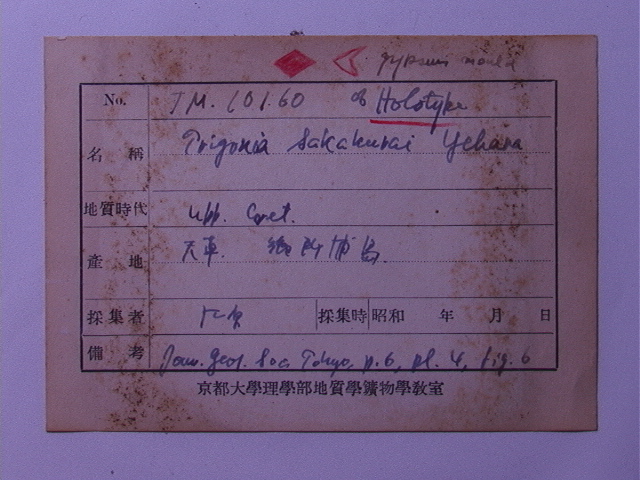 gypsum mould
No. JM. 101.60 of Holotype
名稱 Trigonia Sakakurai Yehara
地質時代 Upp. Cret.
產地 天草. 御所浦島.
採集者 採集時 昭和 年 月 日
備考 Jour. Geol. Soc. Tokyo, p. 6, pl. 4, fig. 6
京都大學理學部地質學鑛物學敎室